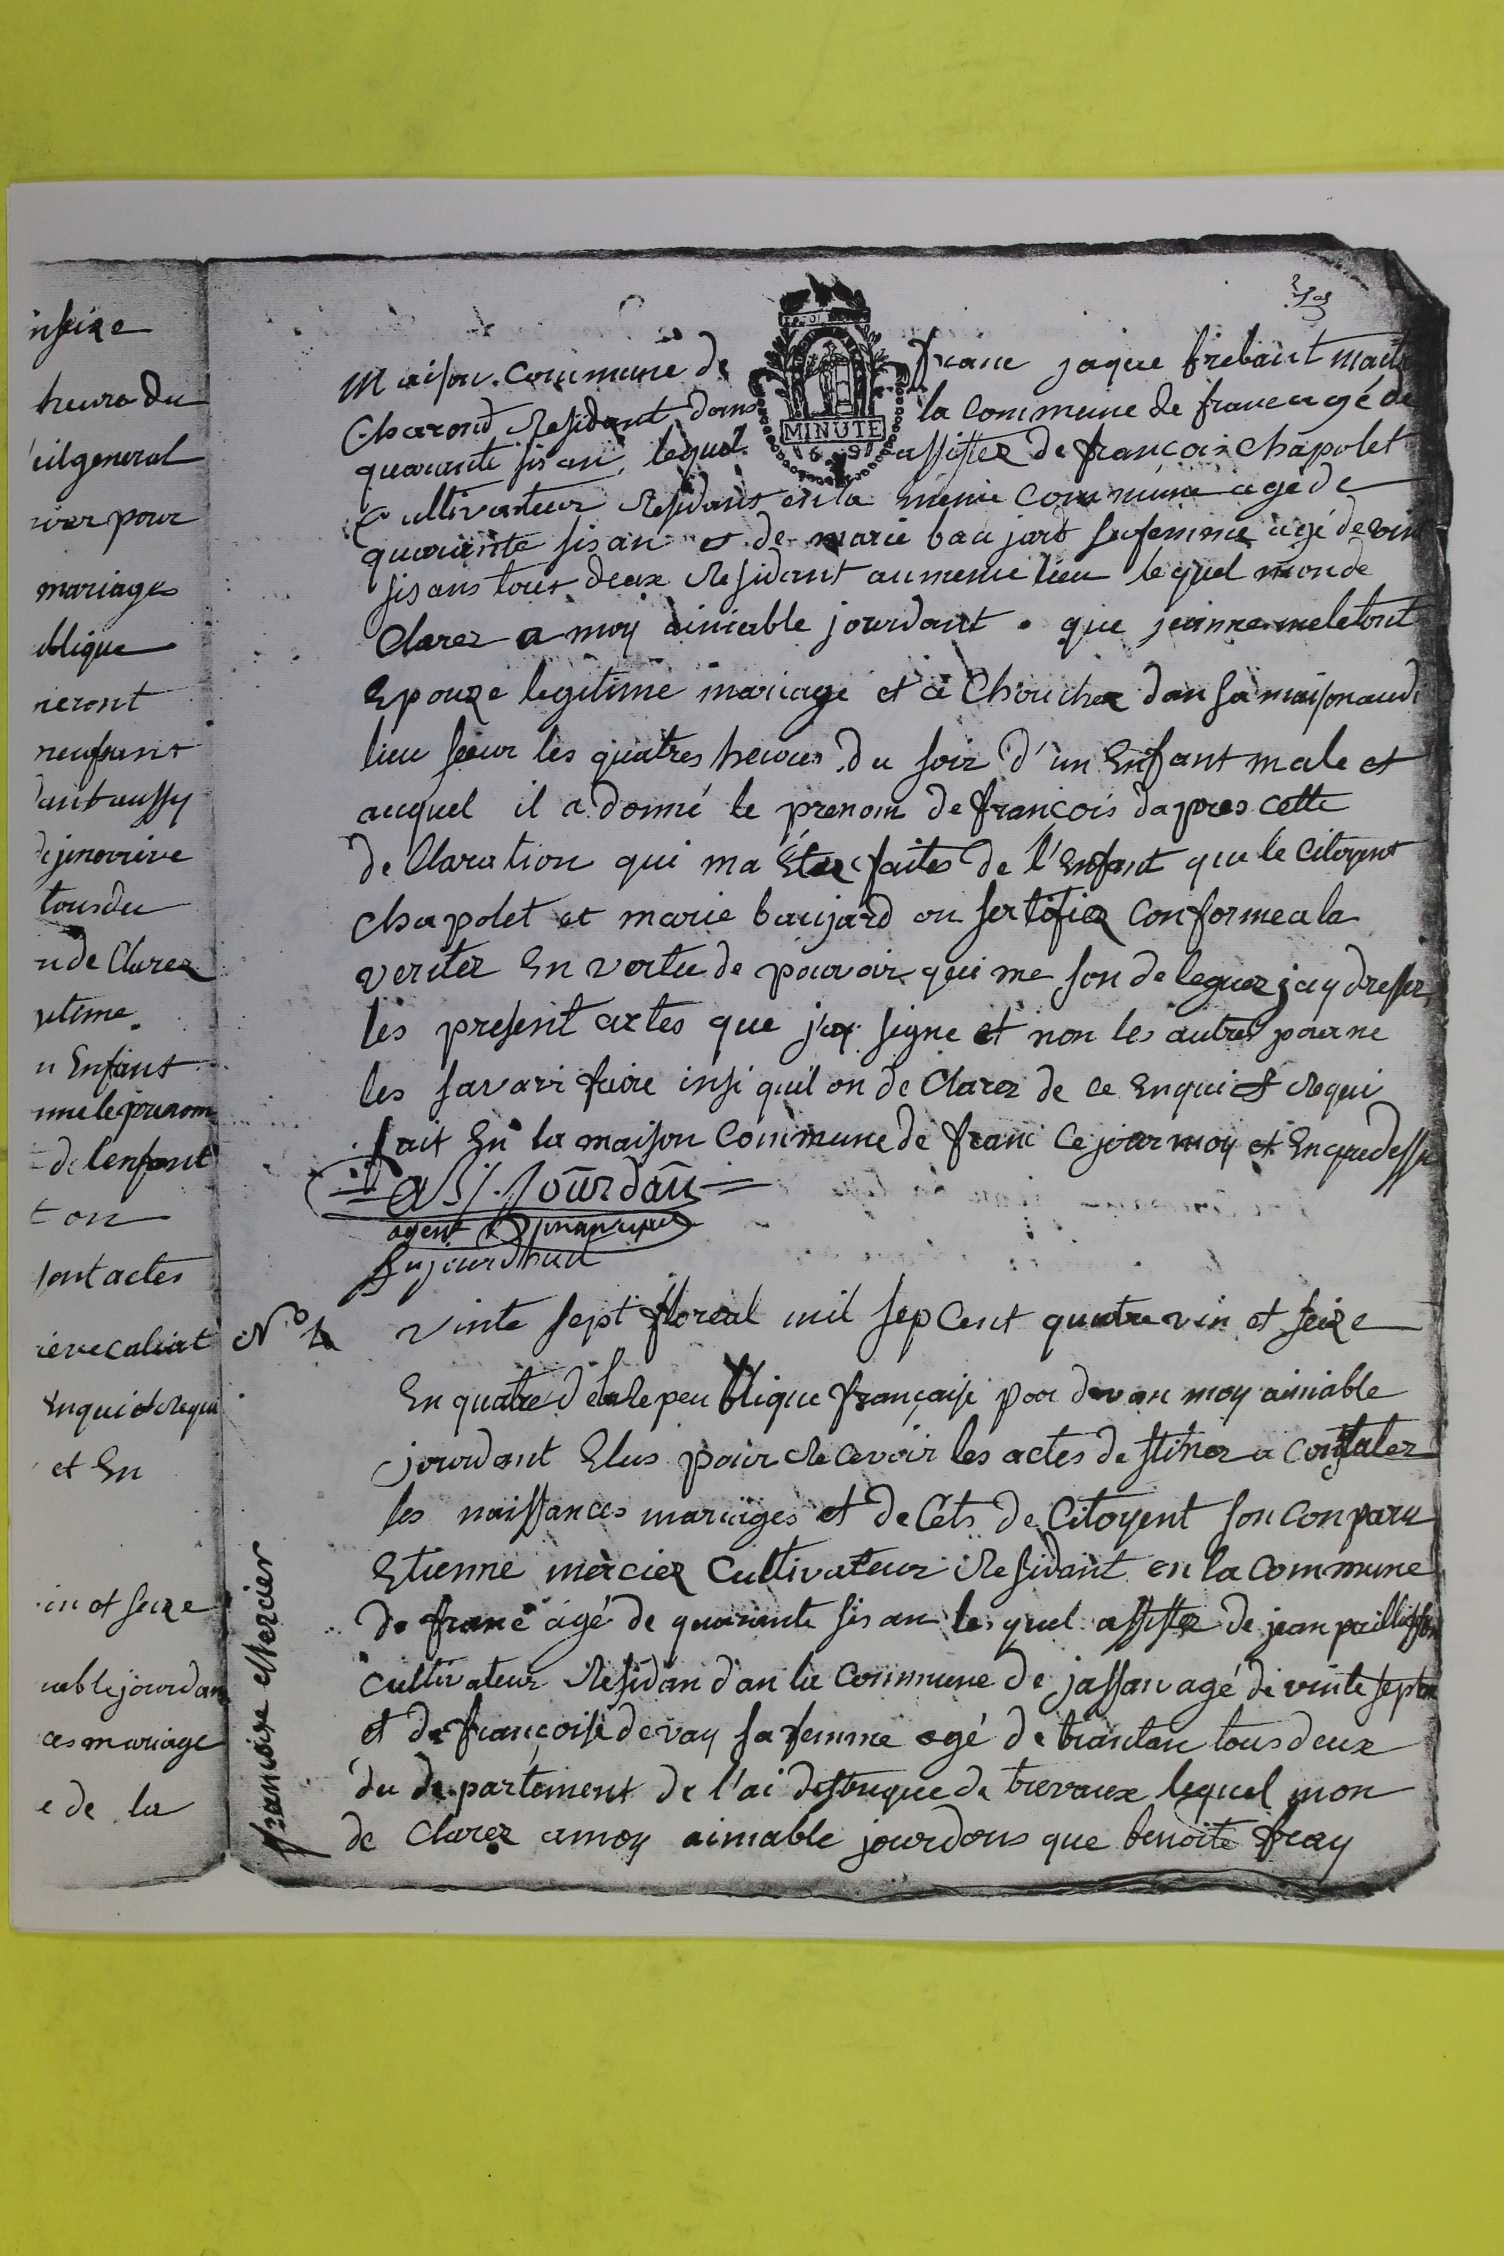 nseize
heure du
eil general
iver pour
mariages
ublique
neront
neufsant
dant aussy
de jenevieve
tous du
n de Clarez
gitime.
n Enfant
nne le prenom
de l'enfant
t on
sont actes
ieve caliat
enqui et requi
et En
in et seize
able jourdan
ces mariage
e de la
maison commune de franc jaque frebaut maitre
Charond residant dans la commune de franc agé de
quarante sis an, lequel assister de françois Chapolet
Cultivateur residant en la meme commune age de
quarante sis an et de marie baujard sa femme agé de vin
sis ans tous deux residant au meme lieu lequel mon de
Clarez a moy aimable jourdant . que jeanne meletont
Epouze legitime mariage et a Choucher dan sa maison audi
lieu seeur les quatres heures du soir d'un Enfant male et
auquel il a donné le prenom de françois dapres cette
de Claration qui ma Eter faites de l'Enfant que le Citoyent
chapolet et marie baujard on sertifiez Conforme a la
veriter En vertu de pouvoir qui me son deleguez jay dresser
les present actes que jay signe et non les autres pour ne
les savari faire insi quil on de Clarez de ce Enqui et requi
fait En la maison Commune de franc Ce jour moy et En que dessu
Jourdan
agent
Aujourdhui
N.o 4
vinte sept floreal mil sep Cent quatre vin et seize
En quatre de la Repeu blique française par devan moy aimable
jourdant Elus pour recevoir les actes destinez a Constatez
les naissances mariages et deCets de Citoyent son Conparu
Etienne merciez Cultivateur residant en la Commune
de franc agé de quarante sis an lesquel assister de jean paillasson
cultivateur residan dan la Commune de jassan agé de vinte sept an
et de françoise devay sa femme agé de trantan tous deux
du departement de l'ai destrique de trevaux lequel mon
de Clarez a moy aimable jourdons que benoite fray
françoise Mercier